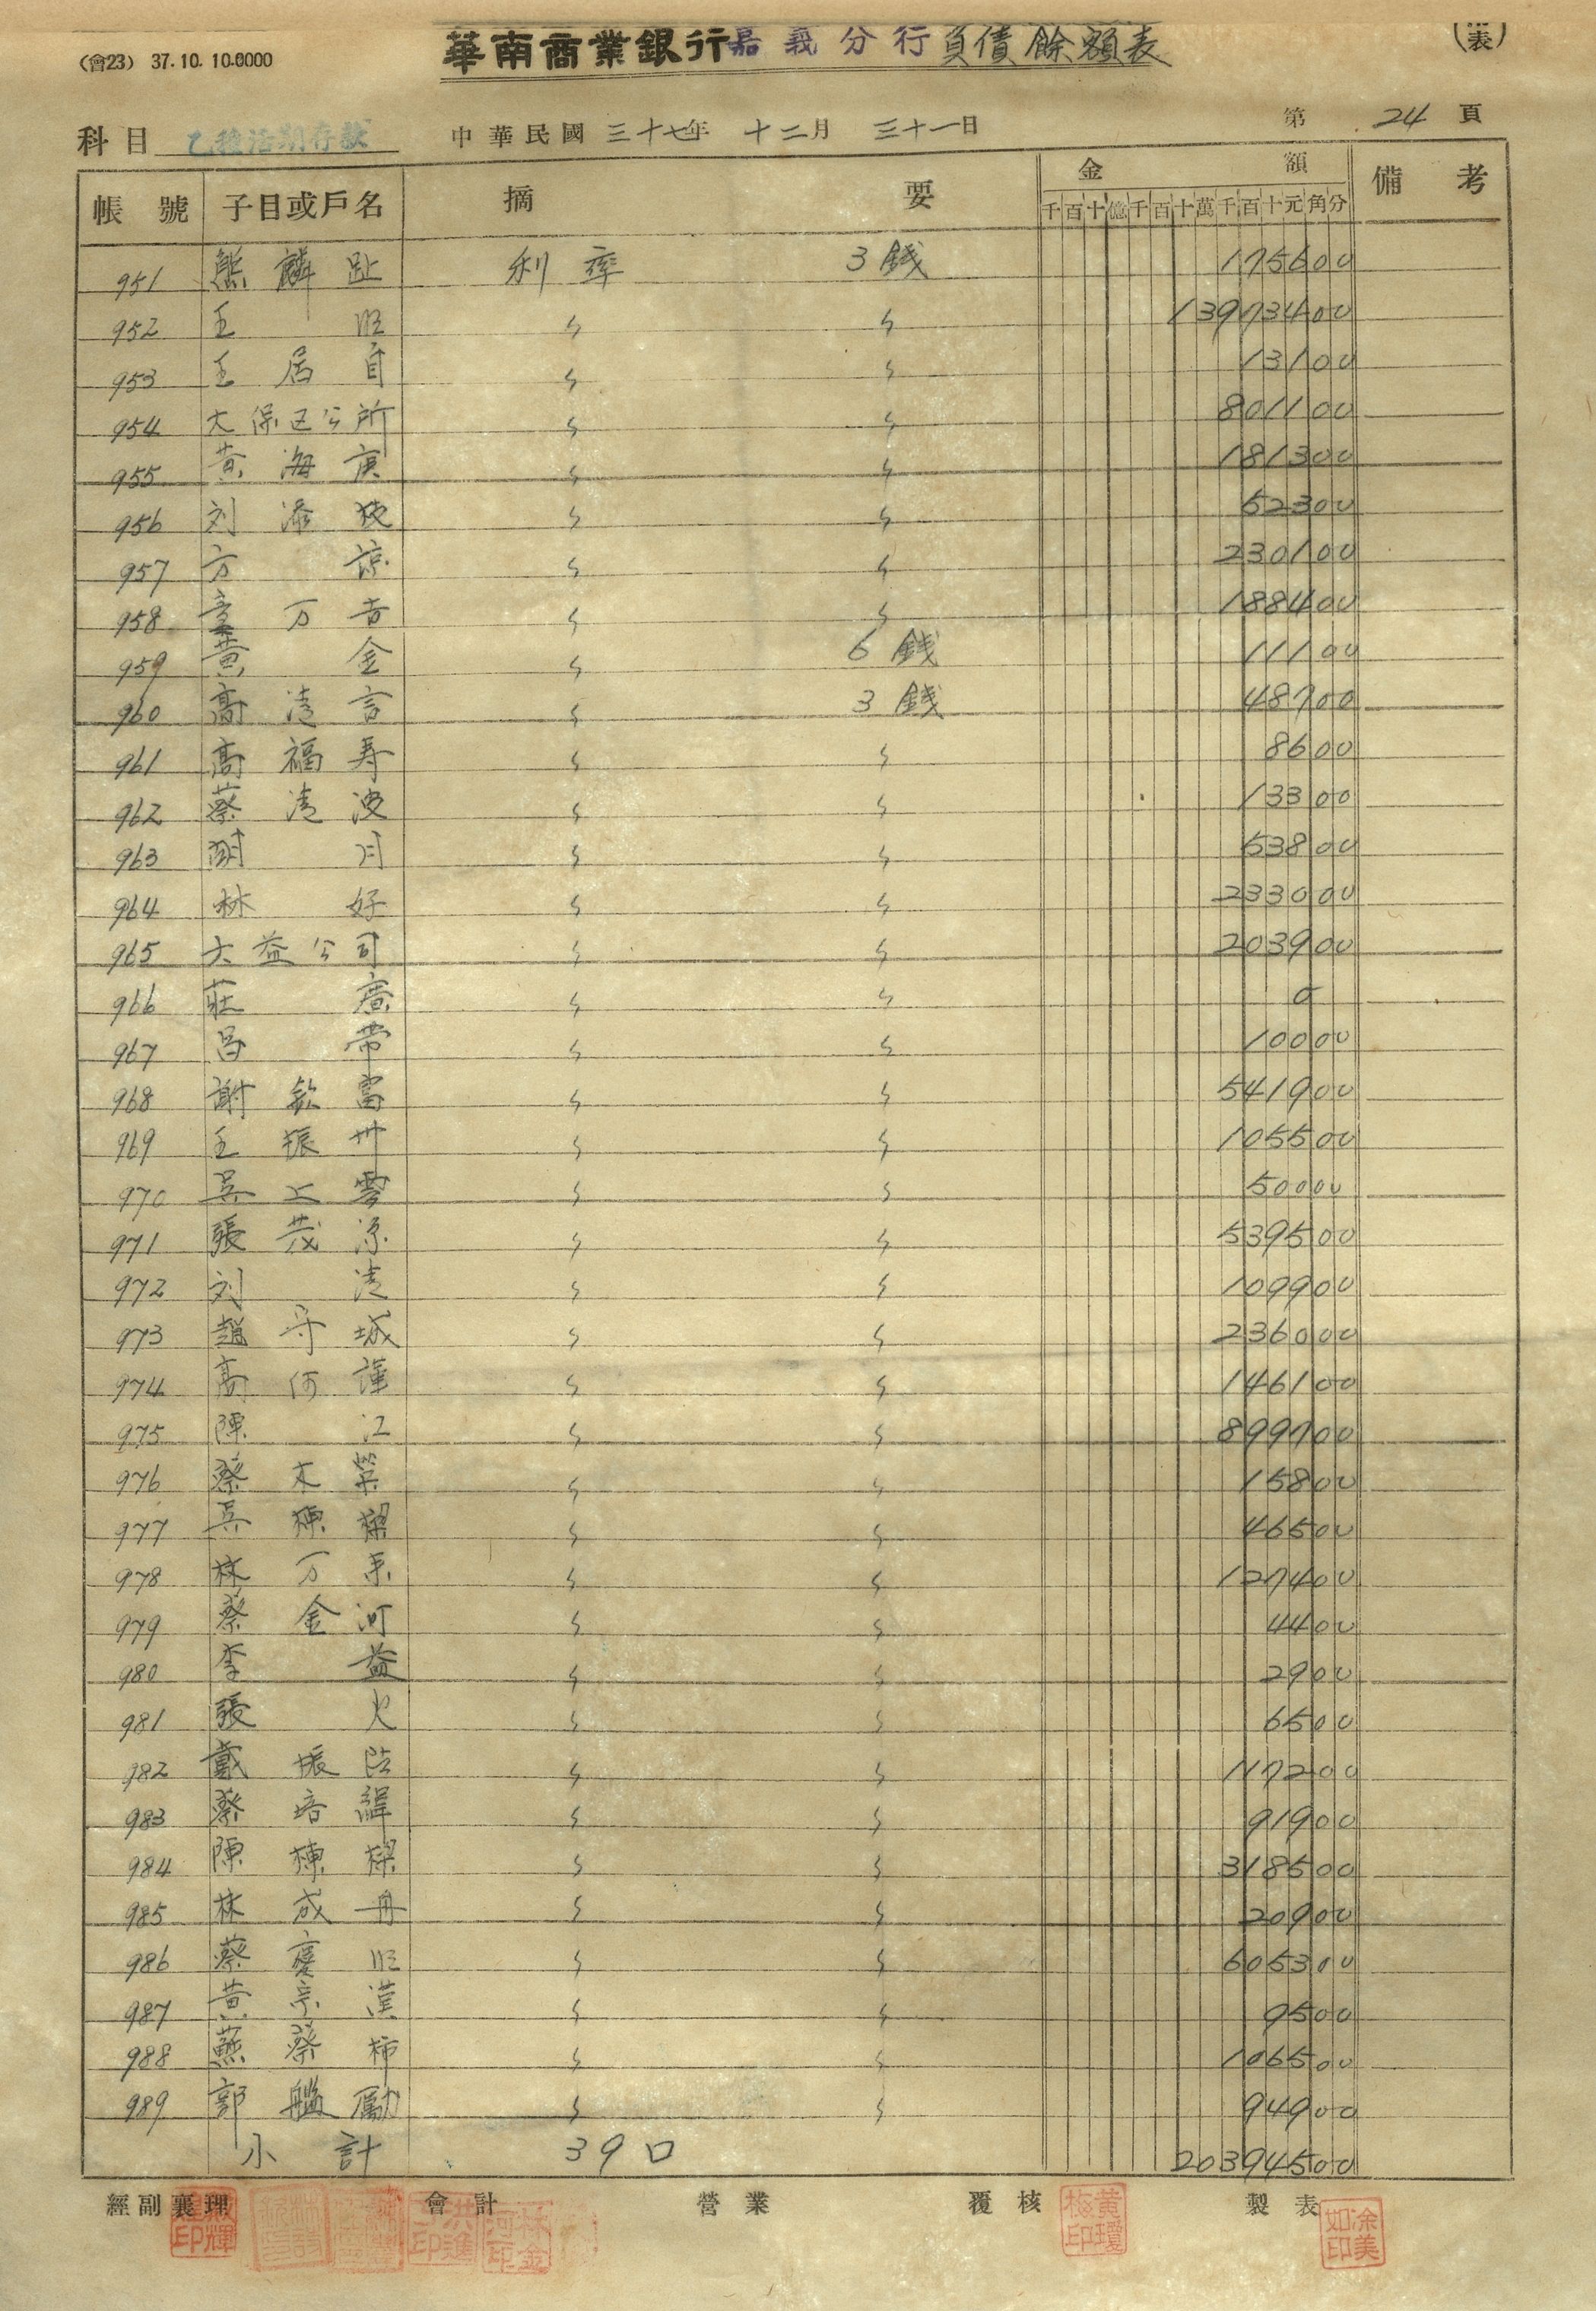 (會23) 37.10.10.0000
華南商業銀行嘉義分行負債餘額表
(表)
科目 乙種活期存款 中華民國三十七年十二月三十一日 第24頁
帳號 子目或戶名 摘要 金額 備考
千百十億千百十萬千百十元角分
951 熊麟趾 利率 3錢 175600
952 王旺 〃 〃 13973400
953 王居自 〃 〃 13100
954 大保区公所 〃 〃 801100
955 黄海庚 〃 〃 181300
956 刘添 〃 〃 52300
957 方諒 〃 〃 230100
958 童万吉 〃 〃 188400
959 黄金 〃 6錢 11100
960 高清言 〃 3錢 48700
961 高福寿 〃 〃 8600
962 蔡清波 〃 〃 13300
963 月 〃 〃 53800
964 林好 〃 〃 233000
965 大益公司 〃 〃 203900
966 莊 〃 〃 0
967 呂帶 〃 〃 10000
968 謝欽富 〃 〃 541900
969 王振卅 〃 〃 105500
970 吳上雲 〃 〃 50000
971 張茂源 〃 〃 539500
972 刘清 〃 〃 109900
973 趙守城 〃 〃 236000
974 高何謹 〃 〃 146100
975 陳江 〃 〃 899700
976 蔡木築 〃 〃 15800
977 吳棟樑 〃 〃 46500
978 林万系 〃 〃 127400
979 蔡金河 〃 〃 4400
980 李益 〃 〃 2900
981 張火 〃 〃 6500
982 戴振 〃 〃 117200
983 蔡培緯 〃 〃 91900
984 陳棟樑 〃 〃 318500
985 林成舟 〃 〃 20900
986 蔡慶旺 〃 〃 605300
987 黄宗漢 〃 〃 9500
988 蘇蔡柿 〃 〃 106500
989 郭艦勵 〃 〃 94900
小計 39口 20394500
經副襄理 會計 營業 覆核 製表
洪進印 林金河印 黃瓊梅印 涂美如印